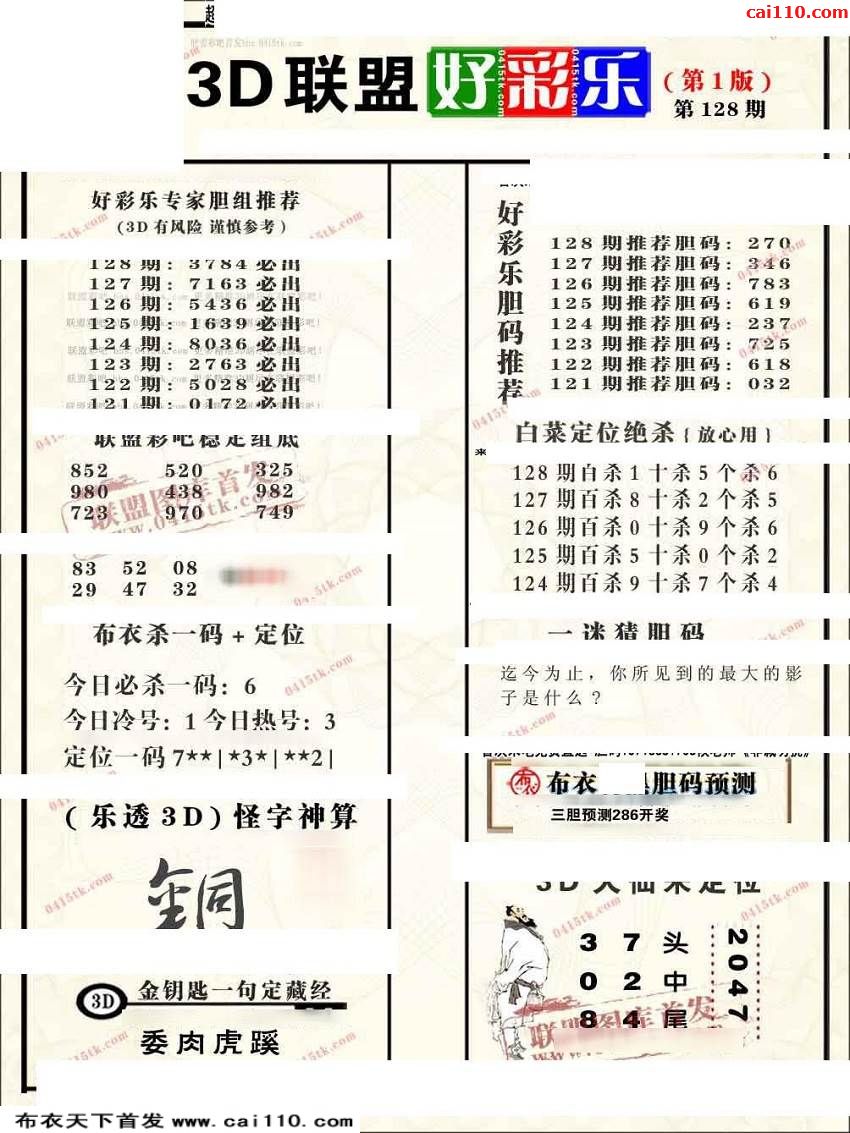 cai110.com
3D联盟好彩乐
(第1版)
第128期
好彩乐专家胆组推荐
(3D有风险 谨慎参考)
128期: 3784必出
127期: 7163必出
126期: 5436必出
125期: 1639必出
124期: 8036必出
123期: 2763必出
122期: 5028必出
121期: 0172必出
联盟彩吧稳定组底
852 520 325
980 438 982
723 970 749
83 52 08
29 47 32
布衣杀一码+定位
今日必杀一码: 6
今日冷号: 1 今日热号: 3
定位一码 7**|*3*|**2|
(乐透3D)怪字神算
銅
3D 金钥匙一句定藏经
委肉虎蹊
好彩乐胆码推荐
128期推荐胆码: 270
127期推荐胆码: 346
126期推荐胆码: 783
125期推荐胆码: 619
124期推荐胆码: 237
123期推荐胆码: 725
122期推荐胆码: 618
121期推荐胆码: 032
白菜定位绝杀{放心用}
128期百杀1十杀5个杀6
127期百杀8十杀2个杀5
126期百杀0十杀9个杀6
125期百杀5十杀0个杀2
124期百杀9十杀7个杀4
一迷猜胆码
迄今为止，你所见到的最大的影
子是什么？
布衣 胆码预测
三胆预测286开奖
3D大仙来定位
3 7 头
0 2 中
8 4 尾
2047
布衣天下首发 www.cai110.com